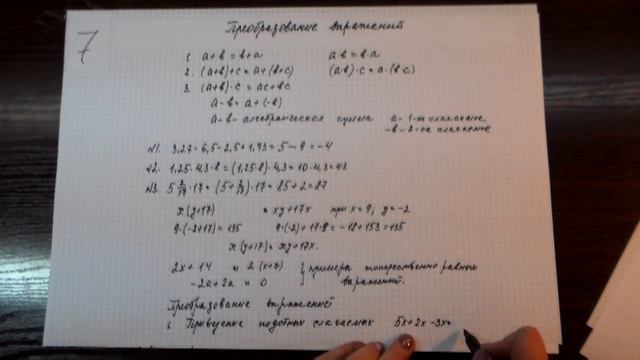 7
Преобразование выражений
1. a+b=b+a a·b=b·a
2. (a+b)+c=a+(b+c) (a·b)·c=a·(b·c)
3. (a+b)·c=ac+bc
a-b=a+(-b)
a-b-алгебраическая сумма a-1-ое слагаемое
-b-2-ое слагаемое
N1. 3,27-6,5-2,5+1,73=5-9=-4
N2. 1,25·4,3·8=(1,25·8)·4,3=10·4,3=43
N3. 5 2/17·17=(5+2/17)·17=85+2=87
x(y+17) и xy+17x при x=9; y=-2
9·(-2+17)=135 9·(-2)+17·9=-18+153=135
x(y+17)=xy+17x.
2x+14 и 2(x+7) } примеры тождественно равных
-2a+2a и 0 выражений.
Преобразование выражений
1 Приведение подобных слагаемых 5x+2x-3x=